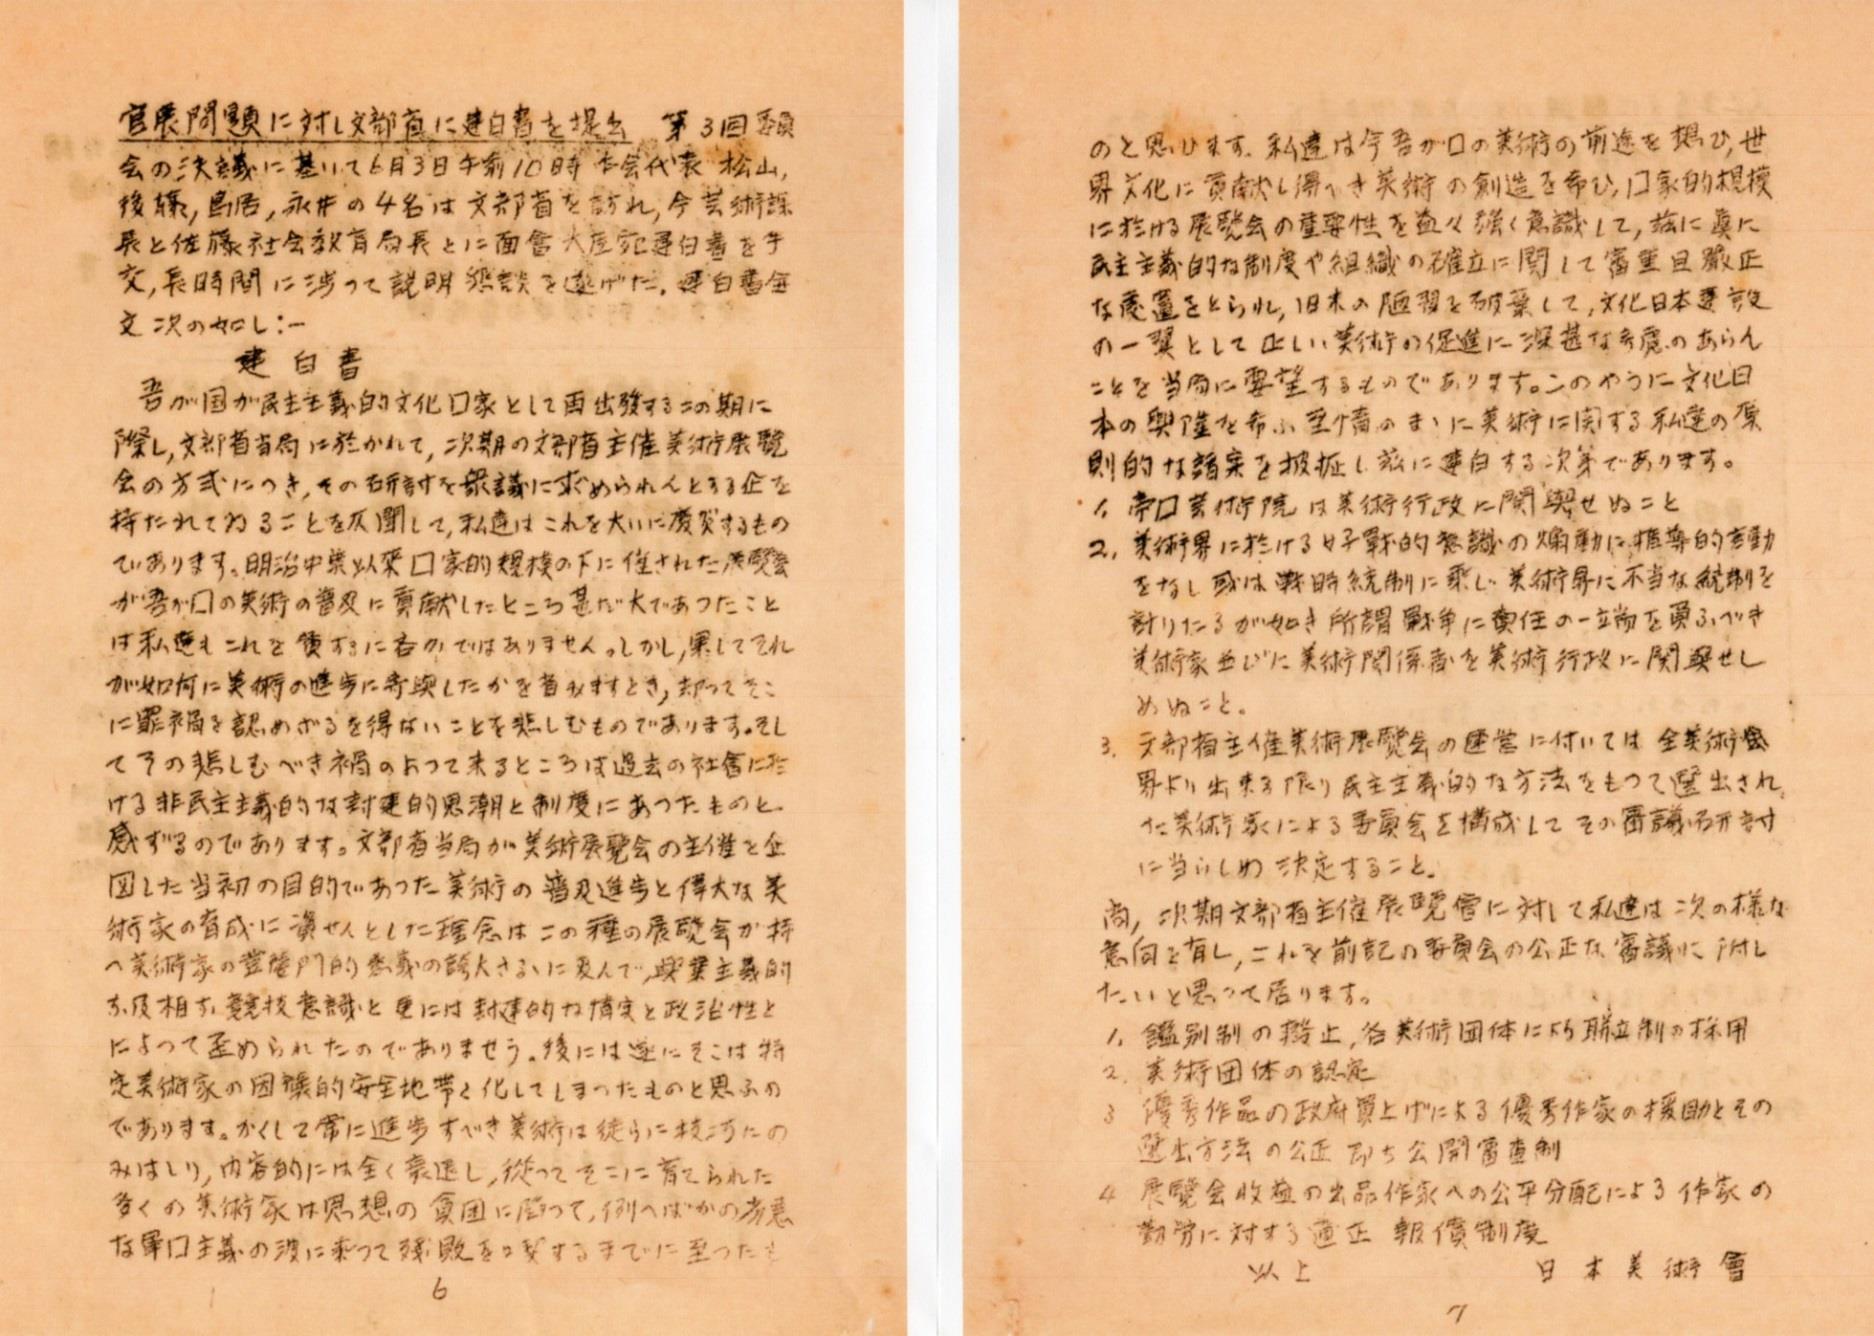 官展問題に対し文部省に建白書を提出　第3回委員
会の決議に基いて6月3日午前10時 本会代表 松山,
後藤, 鳥居, 永井の4名は文部省を訪れ, 今芸術課
長と佐藤社会教育局長とに面會 建白書を手
交, 長時間に渉って説明懇談を遂げた。建白書全
文次の如し:ー
建白書
吾が国が民主主義的文化口家として再出発するこの期に
際し, 文部省当局に於かれて, 次期の文部省主催美術展覧
会の方式につき, その研討を衆議に求められんとする企を
持たれてゐることを仄聞して, 私達はこれを大いに慶賀するもの
であります。明治中葉以来口家的規模の下に催された展覧会
が吾が口の美術の普及に貢献したところ甚だ大であつたこと
は私達もこれを領するに吝かではありません。しかし, 果してそれ
が如何に美術の進歩に寄与したかを省みますとき, 却つてそこ
に罪禍を認めざるを得ないことを悲しむものであります。そし
てその悲しむべき禍のよつて来るところは過去の社會に於
ける非民主主義的な封建的思潮と制度にあつたものと
感ずるのであります。文部省当局が美術展覧会の主催を企
図した当初の目的であつた美術の普及進歩と偉大な美
術家の育成に資せんとした理念はこの種の展覧会が持
つ美術家の登竜門的意義の誇大さるゝに及んで,
競技意識と更には封建的な情実と政治性と
によつて歪められたのでありませう。後には遂にそこは特
定美術家の因襲的安全地帯と化してしまつたものと思ふの
であります。かくして常に進歩すべき美術は徒らに枝
みはしり, 内容的には全く衰退し, 従つてそこに育てられた
多くの美術家は思想の貧困に陥つて, 例へばかの
な軍口主義の波に乗つて残敗を喫するまでに至つたも
6
のと思ひます。私達は今吾が口の美術の前途を想ひ, 世
界文化に貢献し得べき美術の創造を希ひ, 口家的規模
に於ける展覧会の重要性を益々強く意識して, 茲に真に
民主主義的な制度や組織の確立に関して審重且厳正
な處置をとられ, 旧来の陋習を破棄して, 文化日本建設
の一翼として正しい美術の促進に深甚な考慮のあらん
ことを当局に要望するものであります。このやうに文化日
本の興隆を希ふ至情のまゝに美術に関する私達の原
則的な諸案を披瀝し茲に建白する次第であります。
1. 帝口芸術院は美術行政に関與せぬこと
2. 美術界に於ける好戦的意識の煽動に指導的言動
をなし或は戦時統制に乗じ美術界に不当な統制を
計りたるが如き所謂戦争に責任の一端を負ふべき
美術家並びに美術関係者を美術行政に関與せし
めぬこと。
3. 文部省主催美術展覧会の運営に付いては全美術
界より出来る限り民主主義的な方法をもつて選出され
た美術家による委員会を構成してその審議研討
に当らしめ決定すること。
尚, 次期文部省主催展覧會に対して私達は次の様な
意向を有し, これを前記の委員会の公正な審議に附し
たいと思つて居ります。
1. 鑑別制の撤止, 各美術団体による聯立制の採用
2. 美術団体の認定
3 優秀作品の政府買上げによる優秀作家の援助とその
選出方法の公正 即ち公開審査制
4 展覧会収益の出品作家への公平分配による作家の
勤労に対する適正報償制度
以上　日本美術會
7